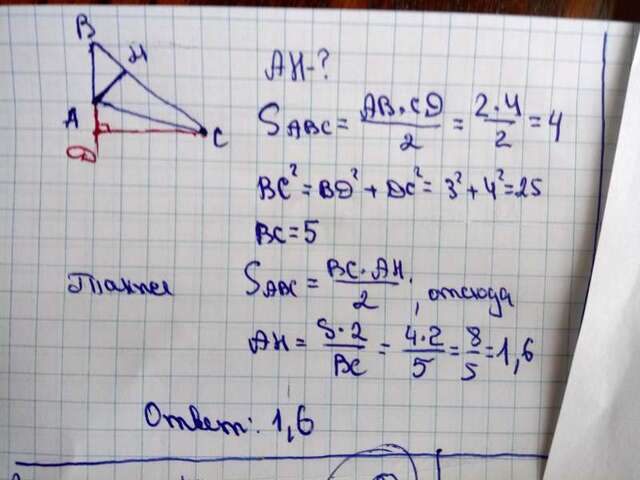 B
A
H
D
C
AH-?
S ABC = AB·CD/2 = 2·4/2 = 4
BC² = BD² + DC² = 3² + 4² = 25
BC = 5
Также S ABC = BC·AH/2, отсюда
AH = S·2/BC = 4·2/5 = 8/5 = 1,6
Ответ: 1,6